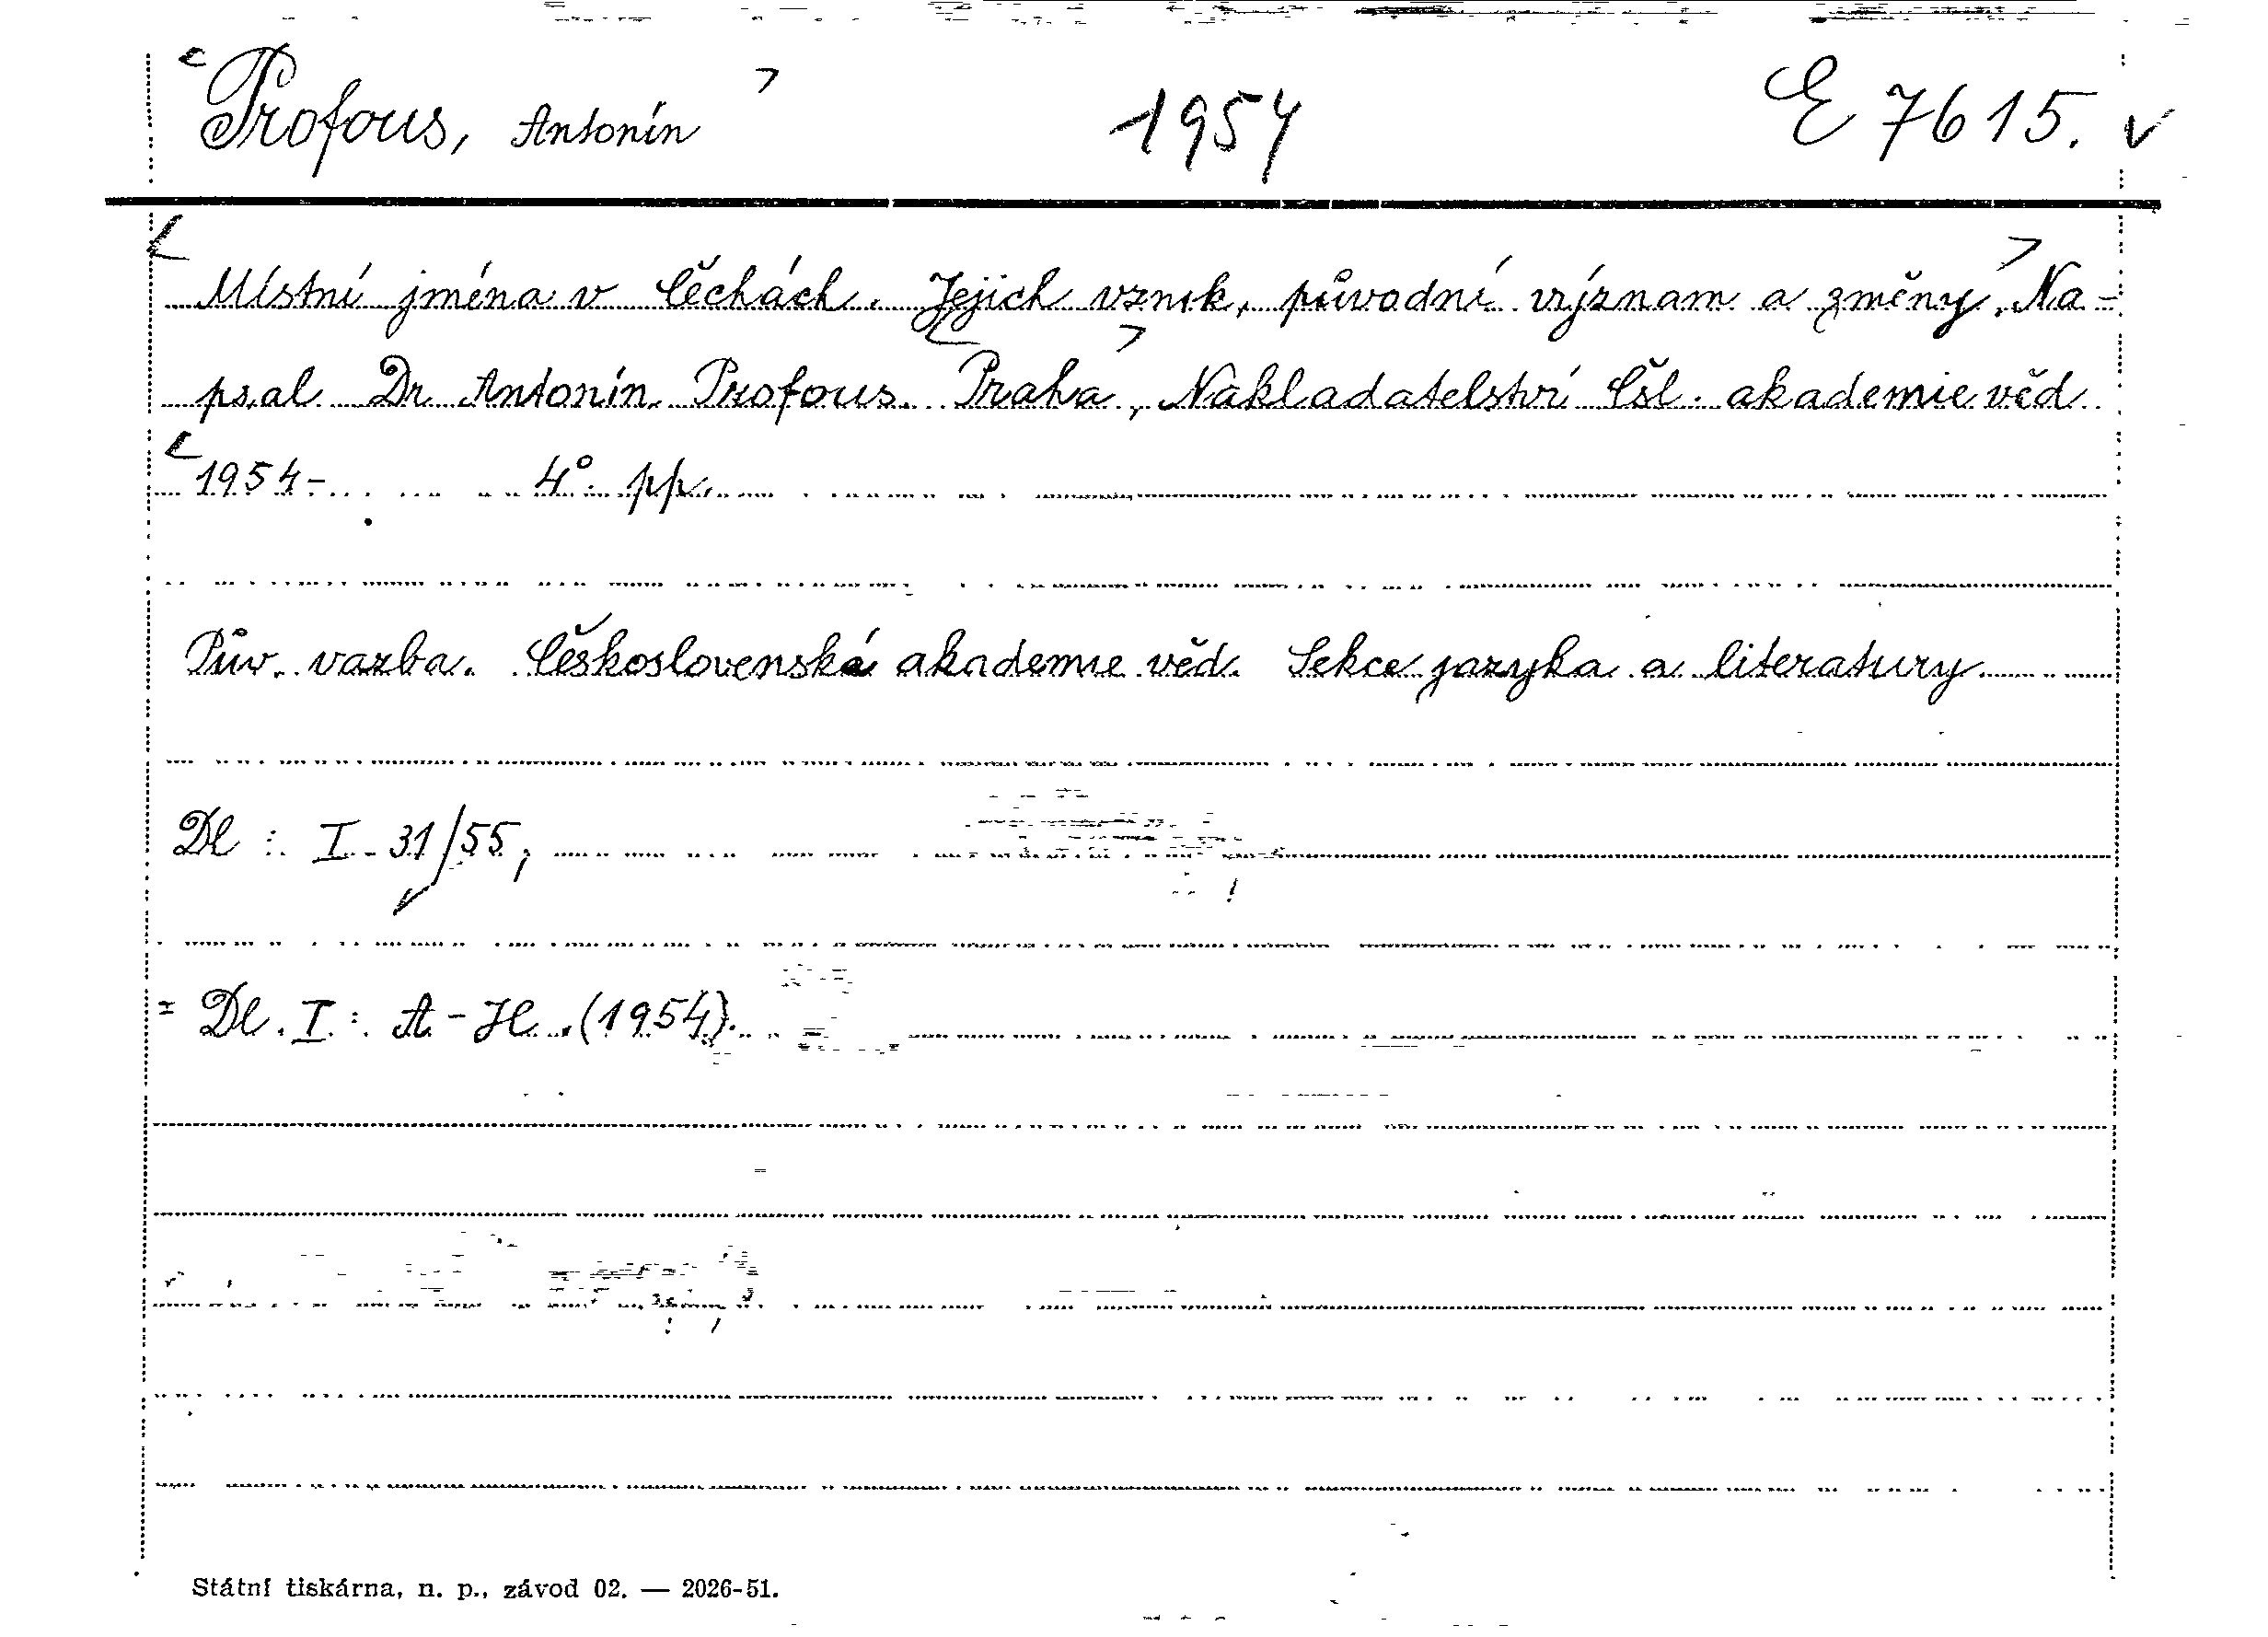 Profous, Antonín 1954 E 7615. v
Místní jména v Čechách. Jejich vznik, původní význam a změny. Na-
psal Dr Antonín Profous. Praha, Nakladatelství Čsl. akademie věd
1954- 4° pp.
Pův. vazba. Československá akademie věd. Sekce jazyka a literatury
Dl : I - 31/55,
= Dl. I : A - H. (1954).
Státní tiskárna, n. p., závod 02. — 2026-51.